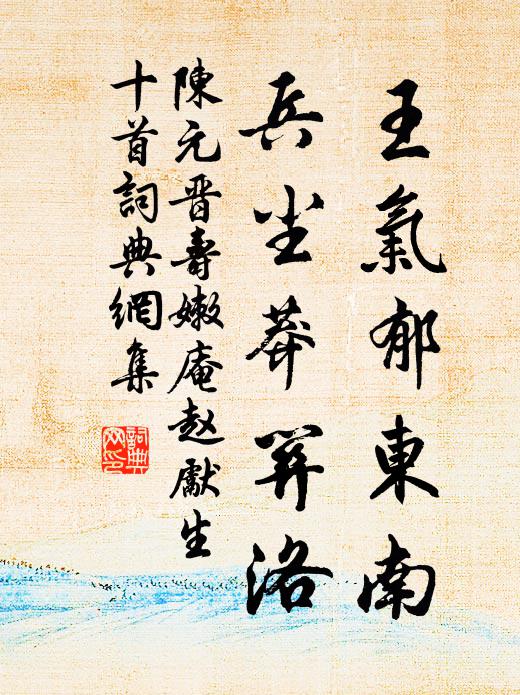 王氣郁東南
兵尘莽关洛
陳元晋壽嫩庵赵獻生
十首詞典網集
詞典
网印